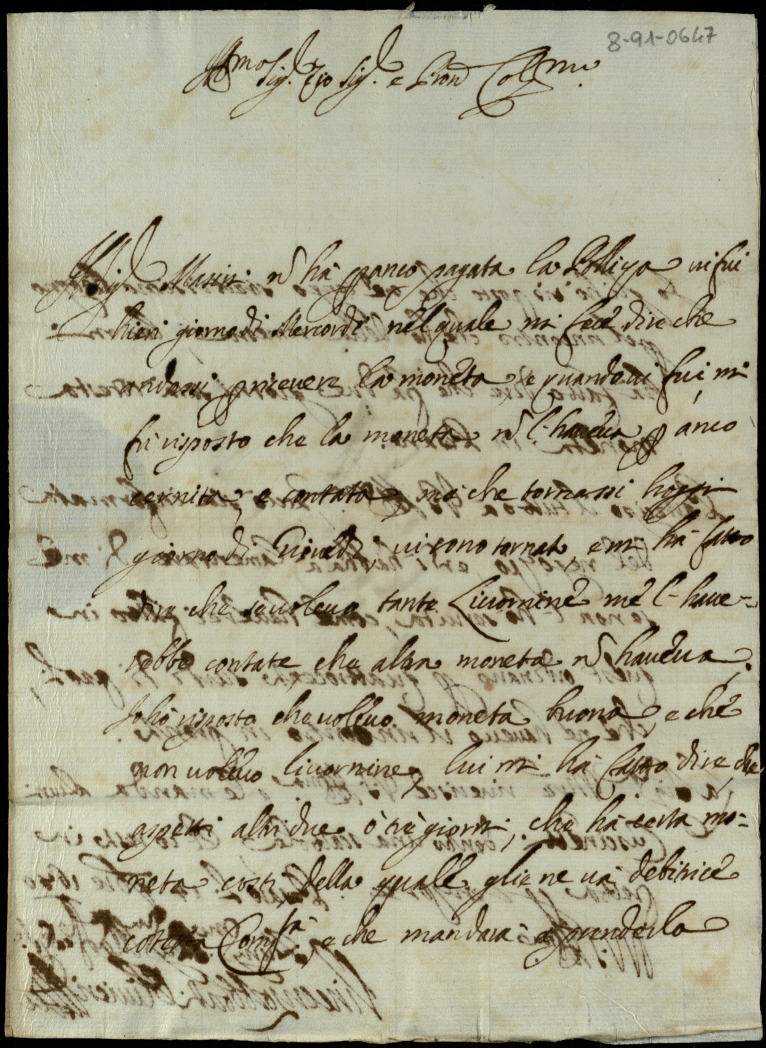 8-91-0647
Sig.r Zio Sig.r e Pron Col.mo
Il Sig.r Massei nõ ha p anco pagata la Polliza vi fui
hieri giorno di Mercordi nel quale mi fece dire che
andassi p ricevere la moneta, e quando vi fui mi
fu risposto che la moneta nõ l'haveva p anco
cernita, e contata, ma che tornassi hoggi
giorno di Giovedi, vi sono tornato, e mi ha fatto
dire che se volevo tante Livornine me l'have=
rebbe contate, che altra moneta nõ haveva,
Io ho risposto che volevo moneta buona, e che
non volevo livornine, lui mi ha fatto dire che
aspetti altri due ò tre giorni, che ha certa mo=
neta costì della quale glie ne va debitrice
cotesta, e che mandara a prenderla